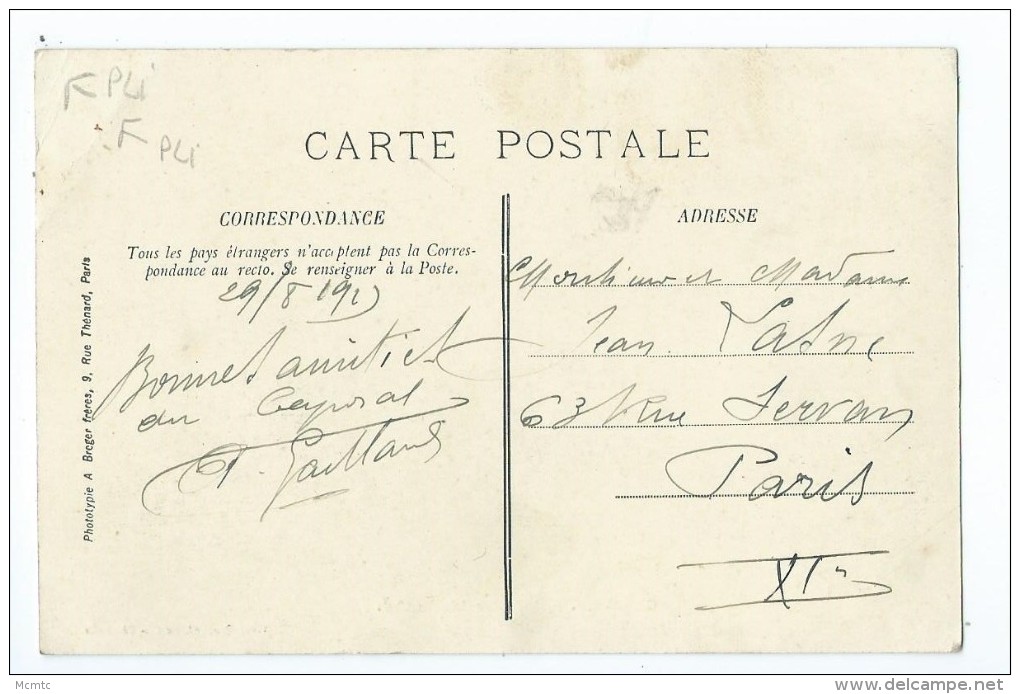 F PLi
F PLi
CARTE POSTALE
CORRESPONDANCE
Tous les pays étrangers n'acceptent pas la Corres-
pondance au recto. Se renseigner à la Poste.
29/8 19
Bonnes amitiés
du Caporal
Gaillard
ADRESSE
Monsieur et Madame
Jean
63 Rue Servan
Paris
XIe
Phototypie A Breger frères, 9, Rue Thénard, Paris
Mcmtc
delcampe.net